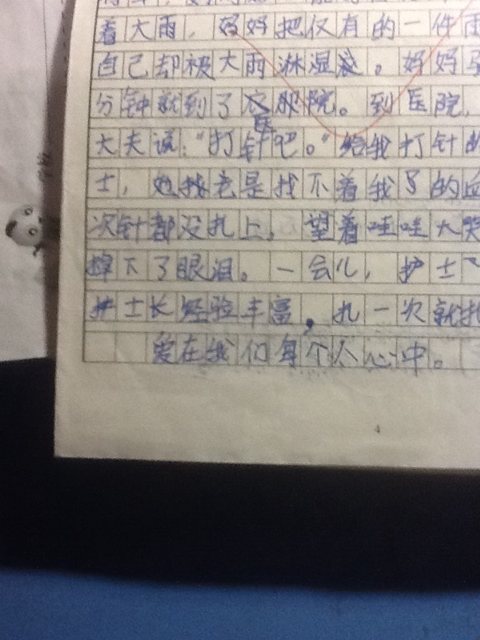 着大雨，妈妈把仅有的一件雨
自己却被大雨淋湿衣。妈妈
分钟就到了医院。到医院，
大夫说：“打针吧。”给我打针的
士，她找老是找不着我的血
次针都没扎上，望着哇哇大哭
掉下了眼泪。一会儿，护士
护士长经验丰富，扎一次就扎
爱在我们每个人心中。
4